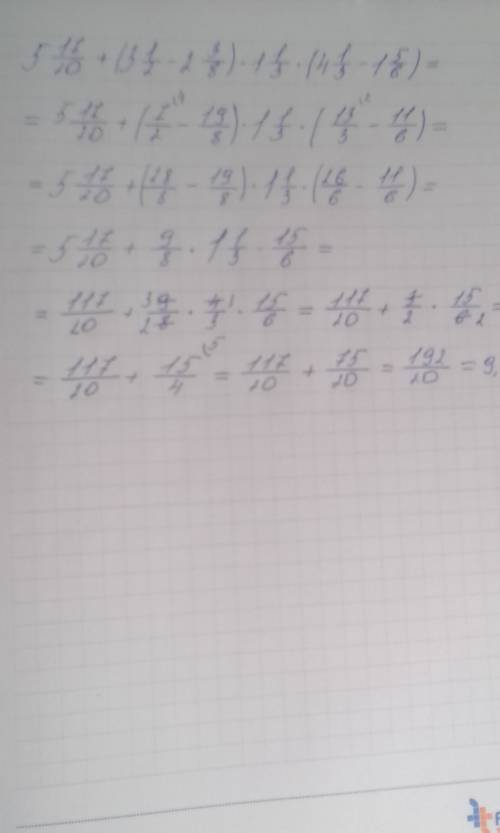 5 17/20 + (3 1/2 - 2 3/8) · 1 1/3 · (4 1/3 - 1 5/6) =
= 5 17/20 + (7/2 - 19/8) · 1 1/3 · (13/3 - 11/6) =
= 5 17/20 + (28/8 - 19/8) · 1 1/3 · (26/6 - 11/6) =
= 5 17/20 + 9/8 · 1 1/3 · 15/6 =
= 117/20 + 9/ · 4/3 · 15/6 = 117/20 + /2 · 15/ =
= 117/20 + 15/4 = 117/20 + 75/20 = 192/20 = 9,